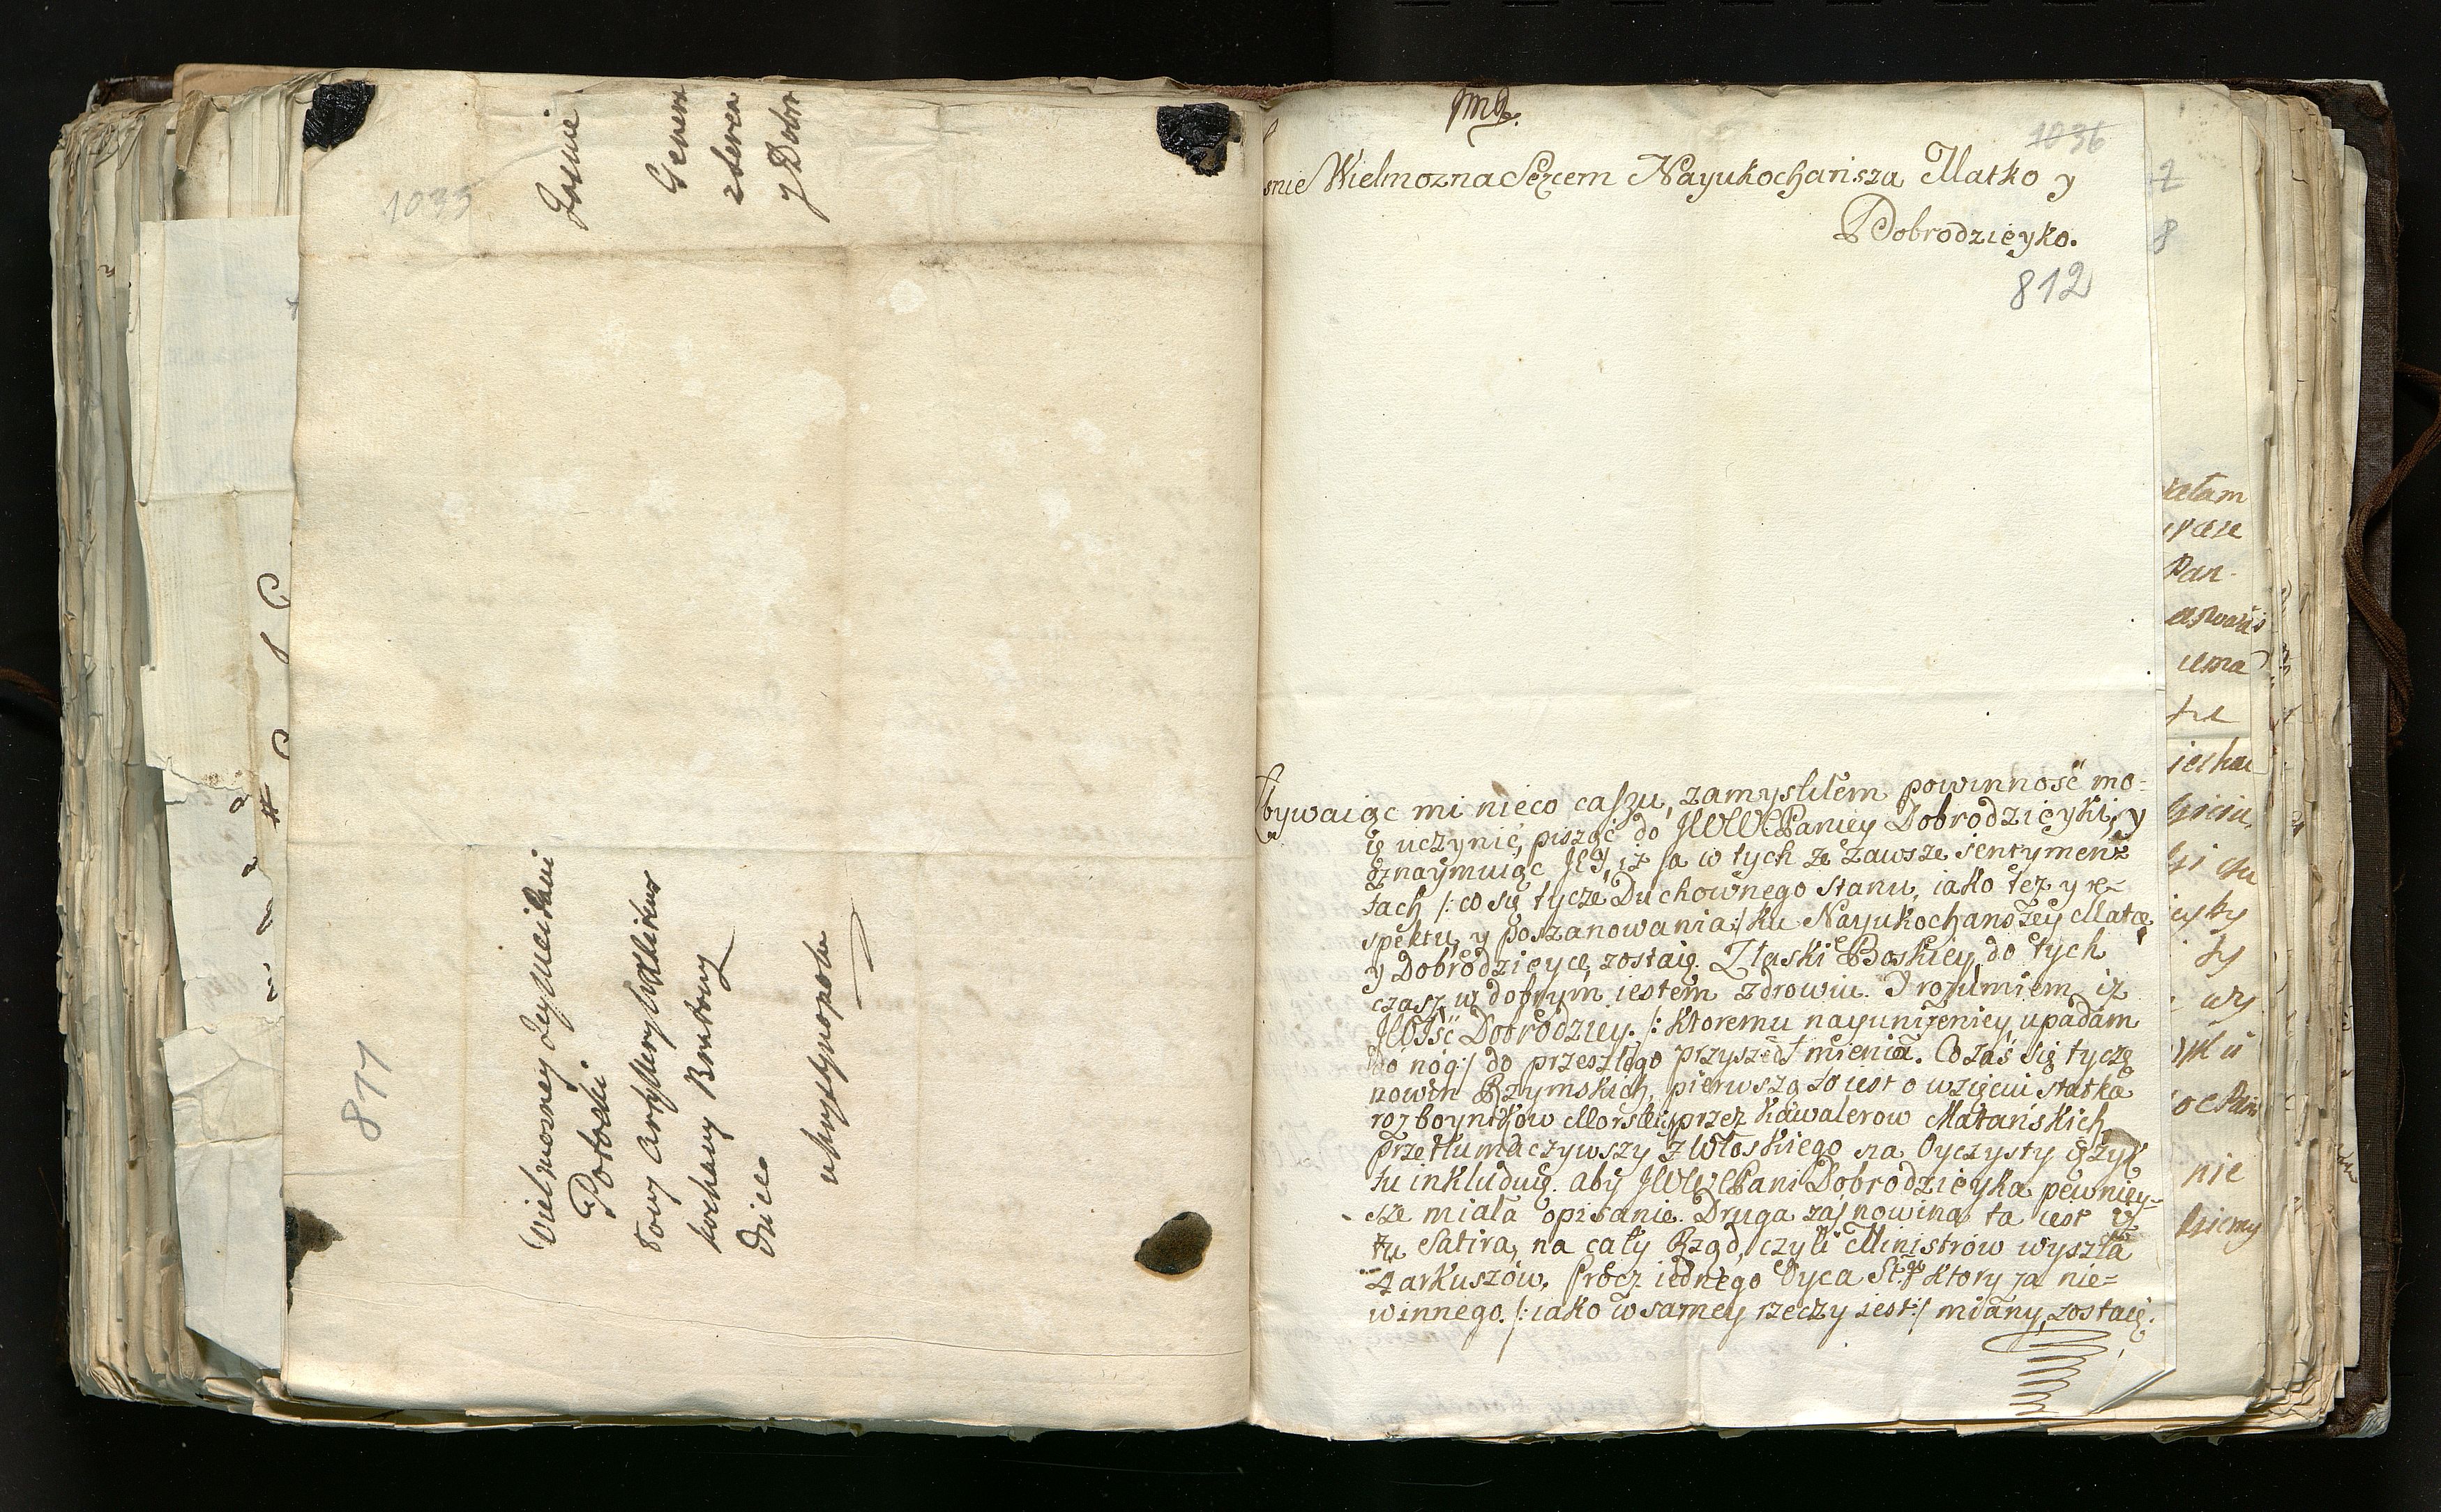 1035
Jasnie
Genera
y Dobr
Wielmozney Jeymcı
Potocki
towy Artylleryi
kochany
Dzice
w Krystynopolu
877
1036
snie Wielmozna Sercem Nayukochańsza Matko y
Dobrodzieyko.
812
bywaiąc mi nieco caszu, zamysliłem powinność mo-
ię uczynić, pisząc do JWWPaniey Dobrodzieyki, y
oznaymuiąc Jey, iz ja w tych ze zawsze sentymen-
tach /: co się tycze Duchownego stanu, iako też y re-
spektu, y poszanowania:/ ku Nayukochanszey Matce
y Dobrodzieyce, zostaię. Z łaski Boskiey do tych
czasz w dobrym iestem zdrowiu. Y rozumiem iz
Dobrodziey. /: Ktoremu nayunizeniey upadam
do nóg:/ do przeszłego przyszedł mienia. Co zaś się tycze
nowin Rzymskich, pierwszą to iest o wzięciu statka
rozboynikow Morskich przez Kawalerow Matańskich
przetłumaczywszy z Włoskiego na Oyczysty ięzyk
tu inkluduię. aby JWWPani Dobrodzieyka pewniey-
sze miała opisanie. Druga zaś nowina ta iest iz
tu Satira, na cały Rząd, czyli Ministrów wyszła
4 arkuszów. Procz iednego Oyca Stgo ktory za nie=
winnego. /: iako w samey rzeczy iest:/ miany, zostaię.
2
8
iałam
Pan-
iema
nie